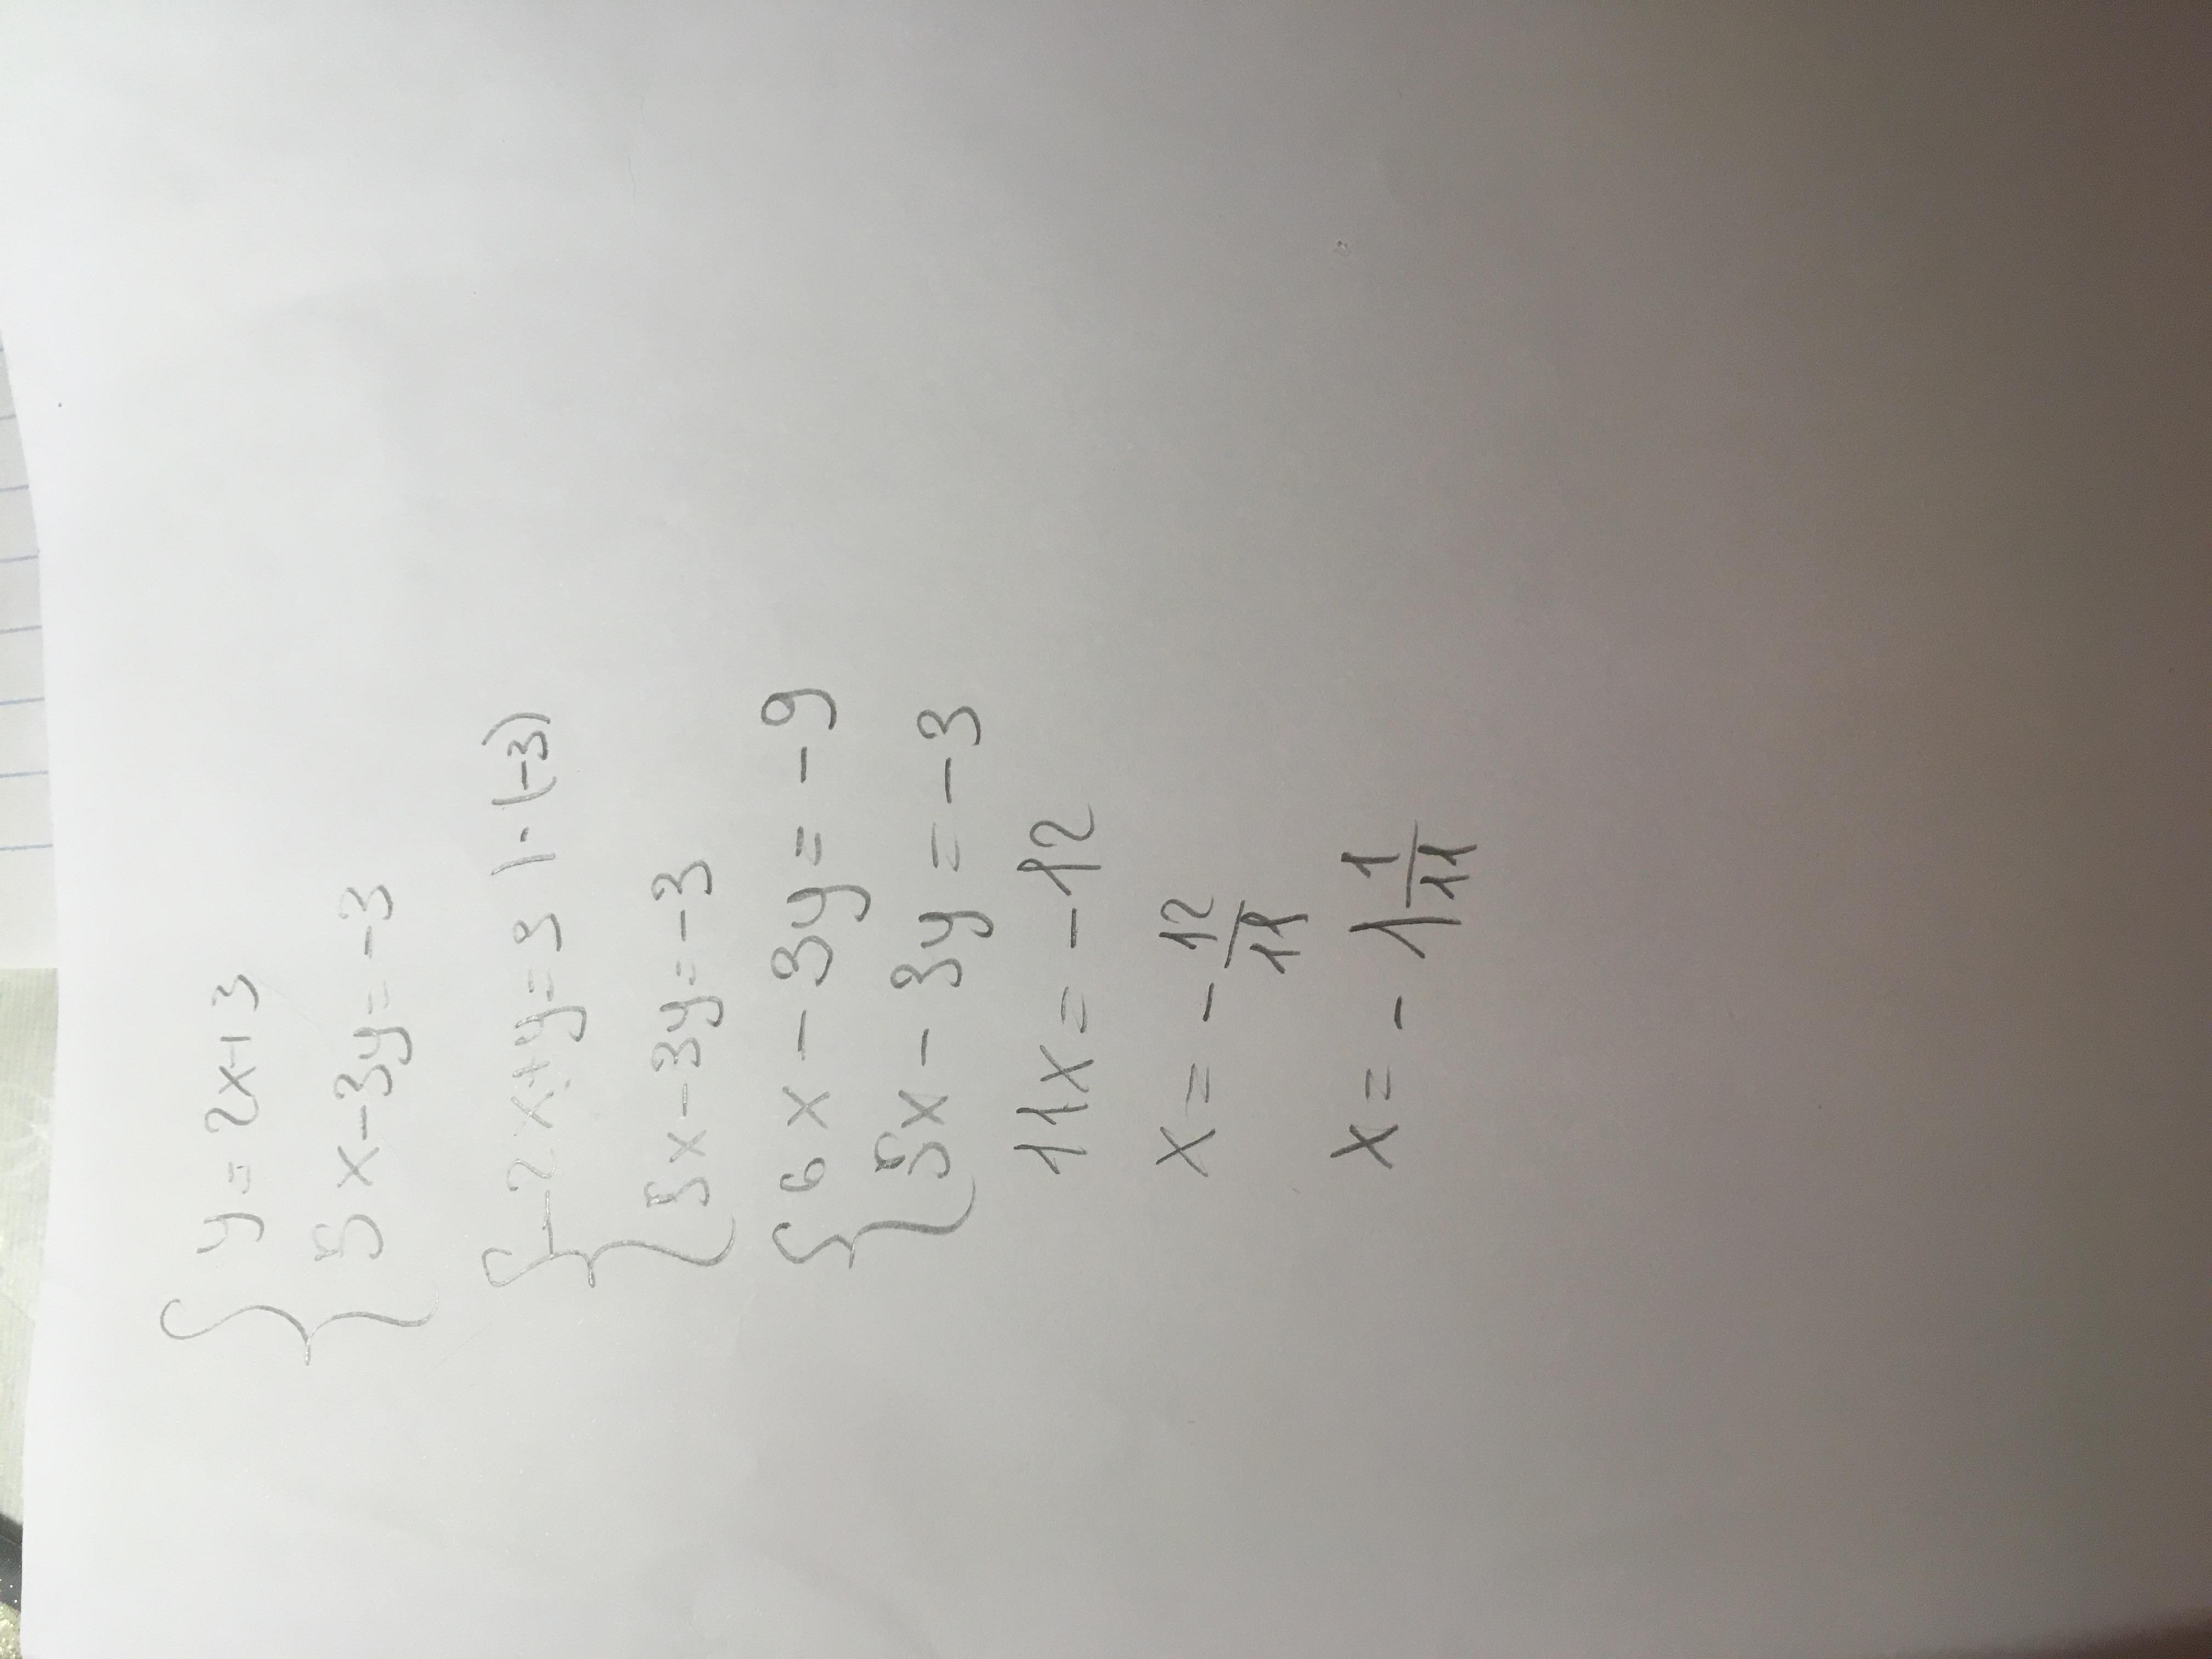 { y = 2x+3
5x-3y=-3
{ -2x+y=3 |·(-3)
5x-3y=-3
{ 6x-3y=-9
5x-3y=-3
11x=-12
x=-12/11
x=-1 1/11